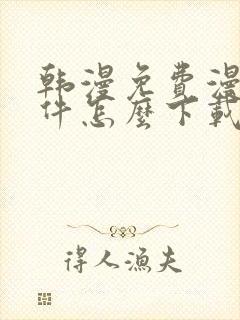 韩漫免費漫
件怎麼下載
得人漁夫